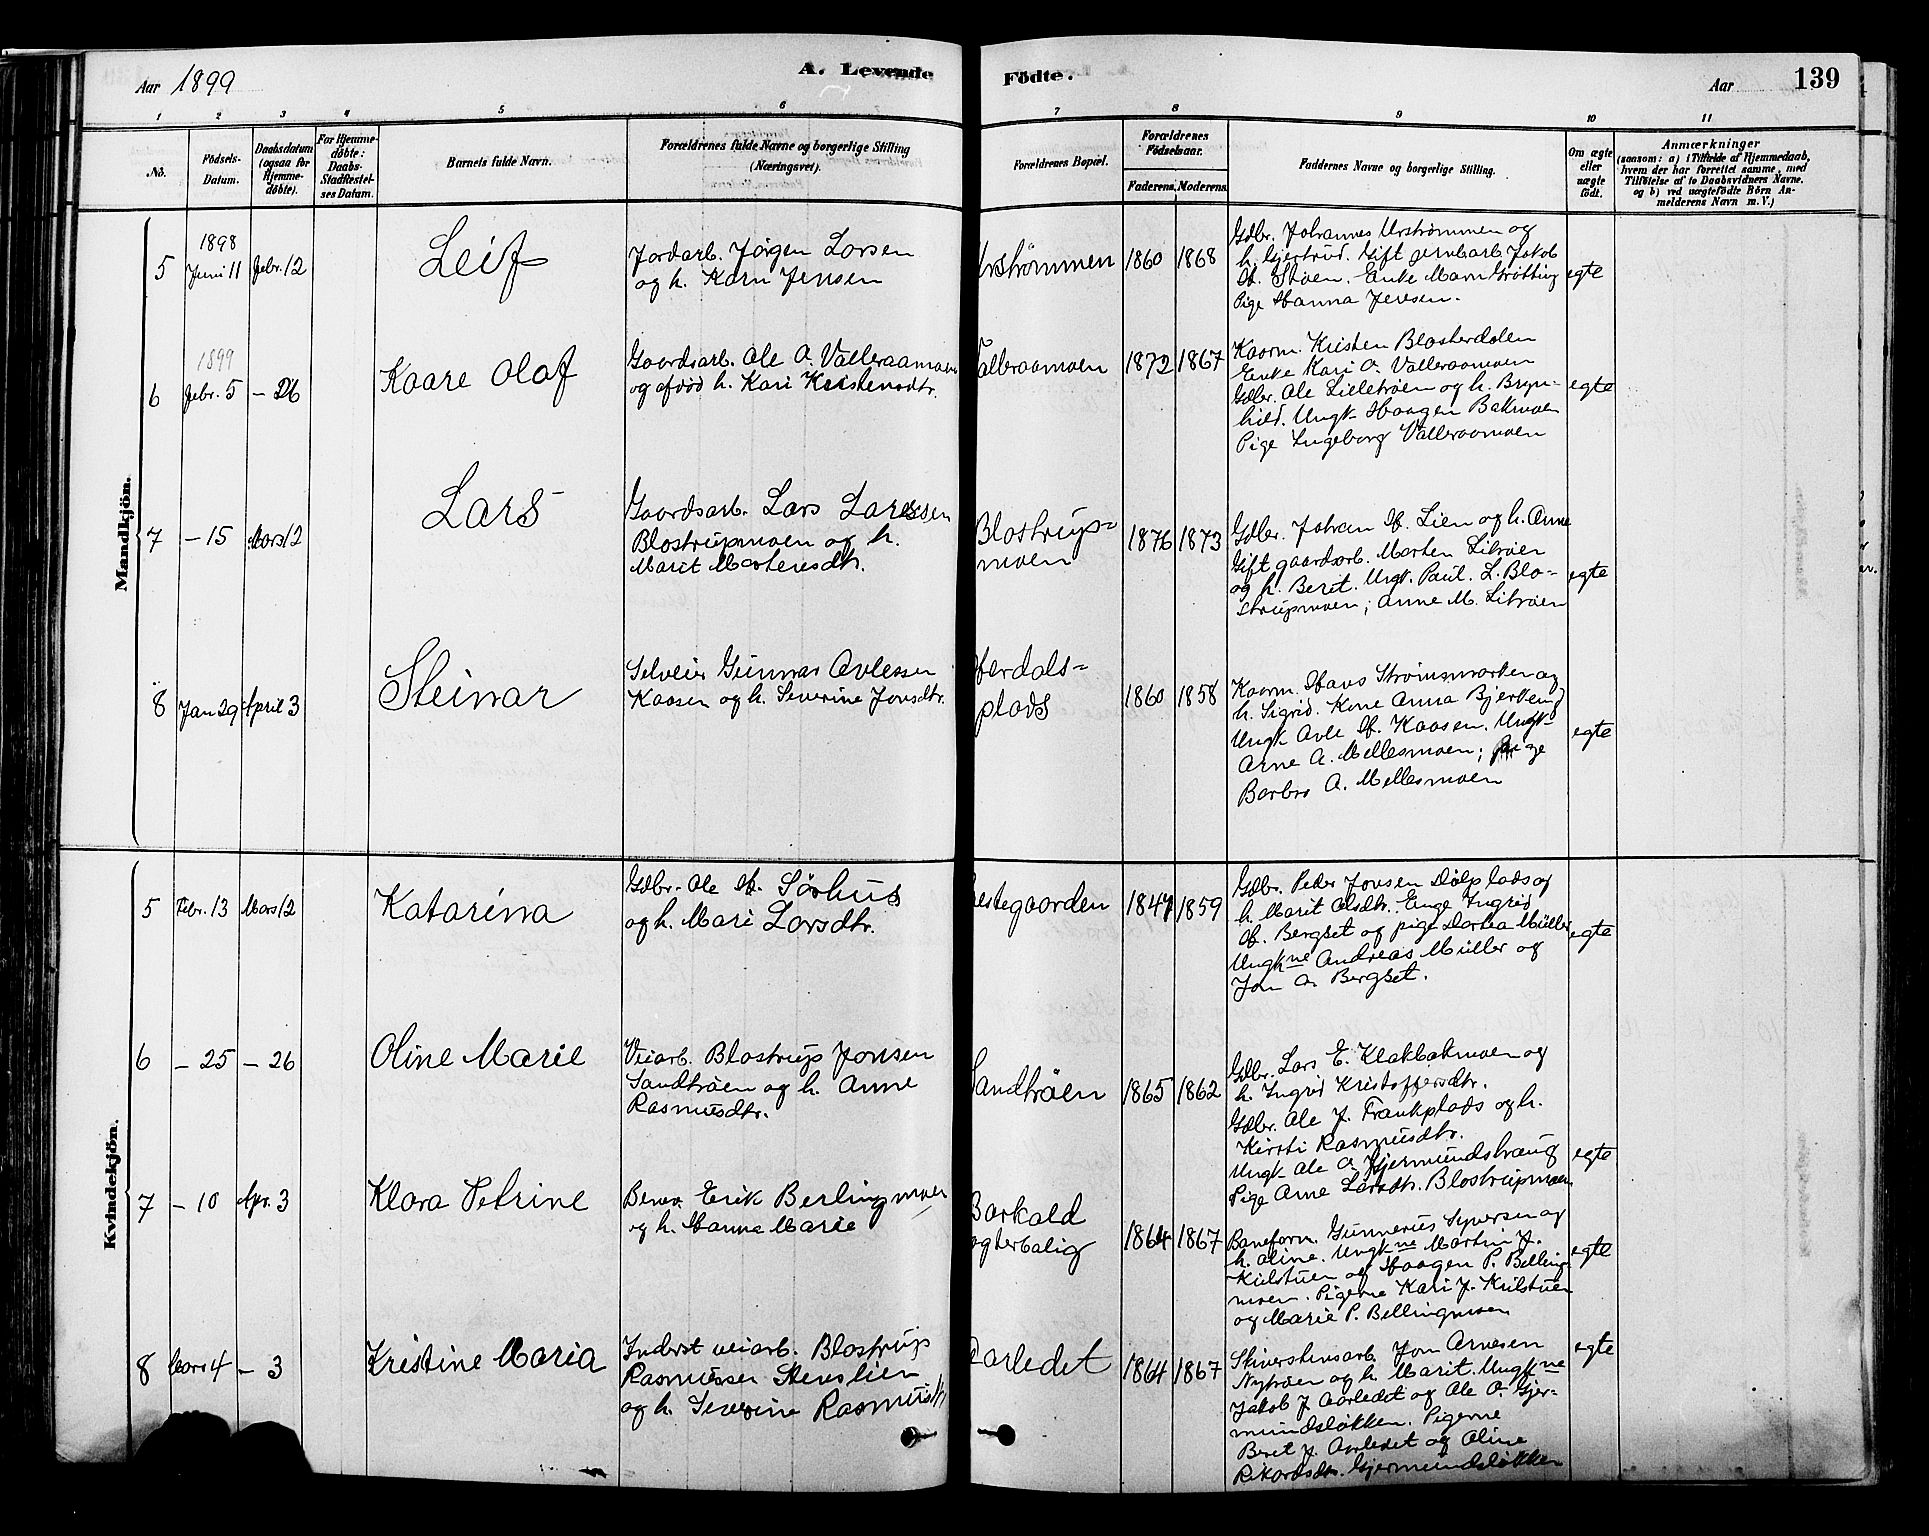 Aar 1899
A. Levende Födte.
Aar
139
1 2 3 4 5 6 7 8 9 10 11
No.
Födsels-
Datum.
Daabsdatum
(ogsaa for
Hjemme-
döbte).
For Hjemme-
döbte:
Daabs-
Stadfæstel-
ses Datum.
Barnets fulde Navn.
Forældrenes fulde Navne og borgerlige Stilling
(Næringsvei).
Forældrenes Bopæl.
Forældrenes
Födselsaar.
Faderens.
Moderens.
Faddernes Navne og borgerlige Stilling.
Om ægte
eller
uægte
födt.
Anmærkninger
(saasom: a) i Tilfælde af Hjemmedaab,
hvem der har forrettet samme, med
Tilföielse af to Daabsvidners Navne,
og b) ved uægtefödte Börn An-
melderens Navn m. V.)
Mandkjön.
5
1898
Juni 11
Febr. 12
Leif
Jordarb. Jörgen Larsen
og h. Karn Jensen
strömmen
1860
1868
Gdbr. Johannes Urströmmen og
h. Gjertrud. Gift jernbarb. Jakob
H. Stöen. Enke Marn Grötting
Pige Hanna Jensen.
egte
6
1899
Febr. 5
- 26
Kaare Olaf
Gaardsarb. Ole O. Valleraamoen
og afdöd h. Kari Kristensdtr.
alleraamoen
1872
1867
Kaarm. Kristen Blosterdalen
Enke Kari O. Valleraamoen
Gdbr. Ole Lilletröen og h. Bryn-
hild. Ungk. Haagen Bakmoen
Pige Ingeborg Valleraamoen
egte
7
- 15
Mars 12
Lars
Gaardsarb. Lars Larssen
Blostrupmoen og h.
Marit Mortensdtr.
Blostrups-
moen
1876
1873
Gdbr. Johan H. Lien og h. Anne
Gift gaardsarb. Morten Litröen
og h. Beret. Ungk. Paul L. Blo-
strupmoen; Anne M. Litröen
egte
8
Jan 29
April 3
Steinar
Selveier Gunnar Avlessen
Kaasen og h. Severine Jonsdtr.
erdals-
plads
1860
1858
Kaarm. Hans Strömsmarken og
h. Sigrid. Kone Anna Bjerkeng
Ungk Avle H. Kaasen. Ungk
Arne A. Mellesmoen; pige
Barbro A. Mellesmoen
egte
Kvindekjön.
5
Febr. 13
Mars 12
Katarina
Gdbr. Ole H. Sörhus
og h. Mari Larsdtr.
estegaarden
1847
1859
Gdbr. Peder Jonsen Dölplads og
h. Marit Olsdtr. Enge Ingrid
H. Bergset og pige Dortea Müller
Ungkne Andreas Müller og
Jon O. Bergset.
egte
6
- 25
- 26
Oline Marie
Veiarb. Blostrup Jonsen
Sandtröen og h. Anne
Rasmusdtr.
Sandtröen
1865
1862
Gdbr. Lars E. Klokbakmoen og
h. Ingrid Kristoffersdtr.
Gdbr. Ole J. Trønkplads og h.
Kirsti Rasmusdtr.
Ungk Ole O. Gjermundshaug
Pige Arne Larsdtr. Blostrupmoen
egte
7
- 10
Apr. 3
Klara Petrine
Banev. Erik Berlingmoen
og h. Hanna Marie
Barkald
ogterbolig
1864
1867
Baneform. Gunnerius Syversen og
h. Oline. Ungkne Martin J.
Kulstuen og Haagen P. Belling-
moen. Pigerne Kari J. Kulstuen
og Marie P. Bellingmoen
egte
8
Mars 4
- 3
Kristine Maria
Inderst veiarb. Blostrup
Rasmussen Stenslien
og h. Severine Rasmusdtr
arledet
1864
1867
Skiverstensarb. Jon Arnesen
Nytröen og h. Marit. Ungkne
Jakob J Aarledet og Ole O. Gjer-
mundslökken. Pigerne
Beret J. Aarledet og Oline
Rikardsdtr. Gjermundslökken
egte